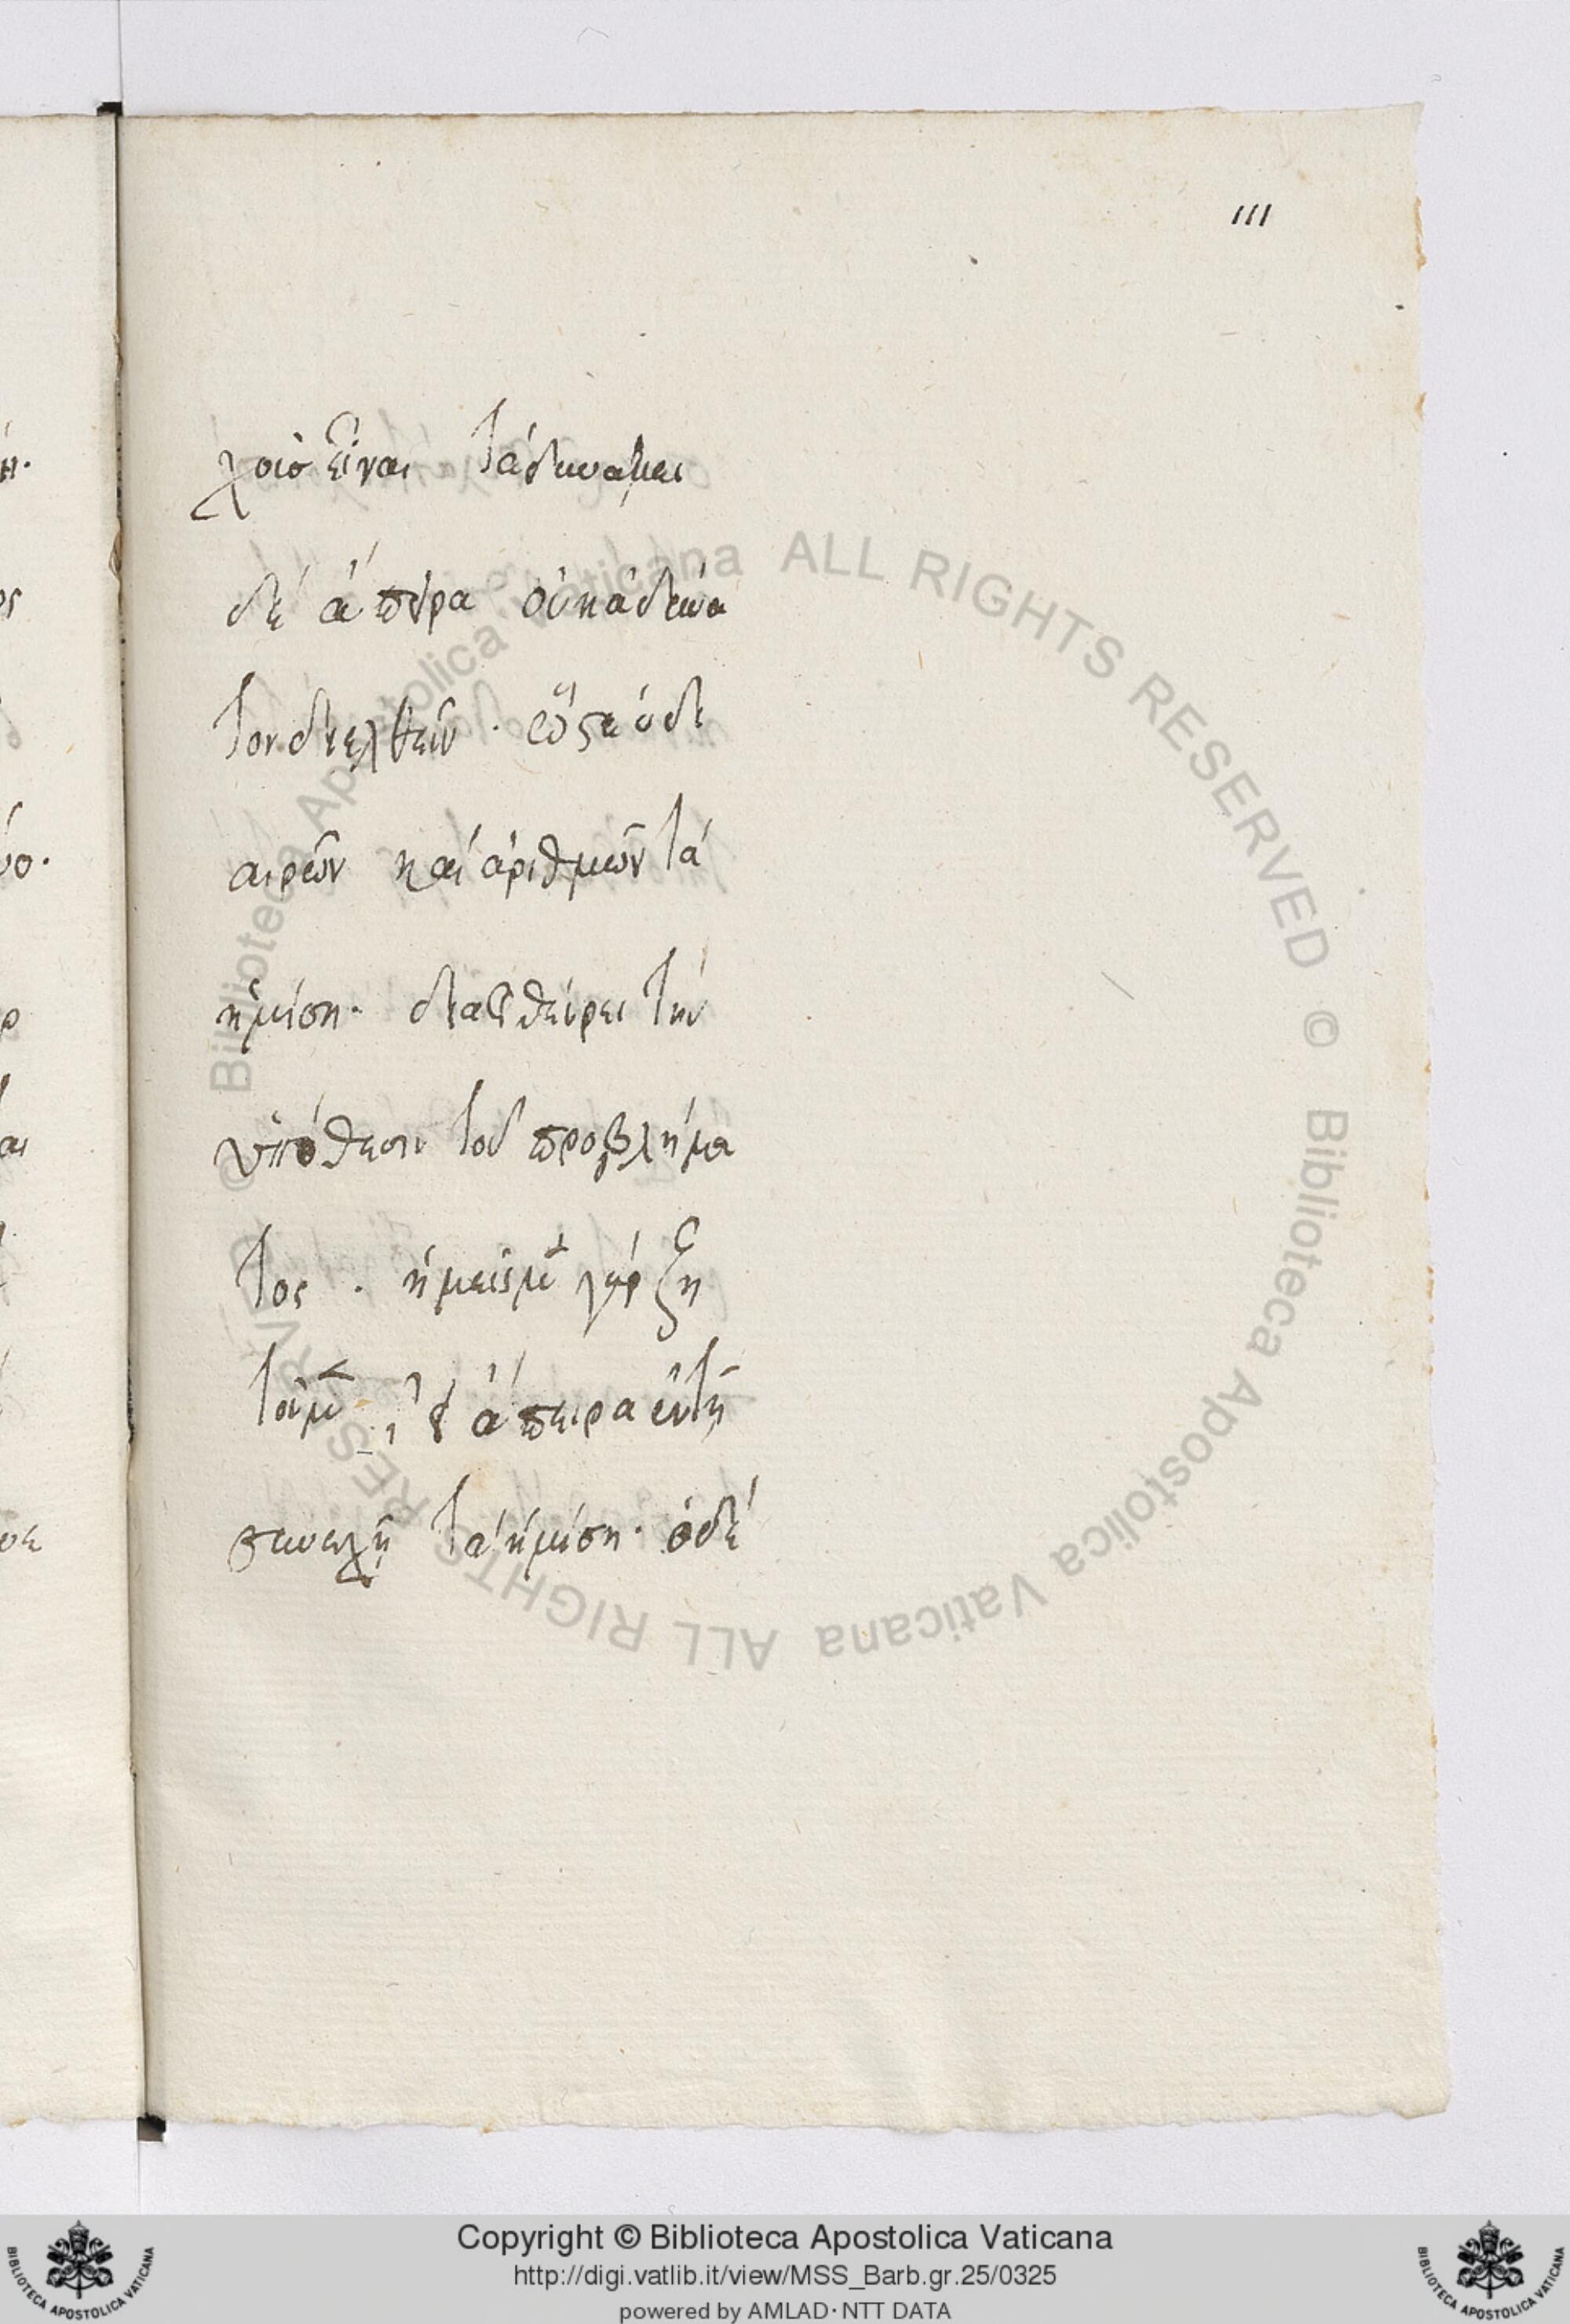 111
χοις εἶναι τὰ δυνάμει
δὲ ἄπειρα οὐκ ἀδύνα
τον διελθεῖν · ὥστε ὁ δι
αιρῶν καὶ ἀριθμῶν τὰ
ἡμίση · διαφθείρει τὴν
ὑπόθεσιν τοῦ προβλήμα
τος · ἡμεῖς μὲν γὰρ ζη
τοῦμεν εἰ ἄπειρα ἐν τῷ
συνεχεῖ τὰ ἡμίση · ὁ δὲ
Biblioteca Apostolica Vaticana ALL RIGHTS RESERVED © Biblioteca Apostolica Vaticana ALL RIGHTS RESERVED ©
Copyright © Biblioteca Apostolica Vaticana
http://digi.vatlib.it/view/MSS_Barb.gr.25/0325
powered by AMLAD · NTT DATA
BIBLIOTECA APOSTOLICA VATICANA
BIBLIOTECA APOSTOLICA VATICANA